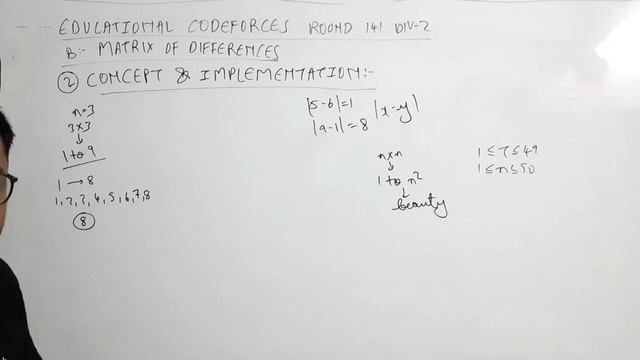 EDUCATIONAL CODEFORCES ROUND 141 DIV-2
B:- MATRIX OF DIFFERENCES
2 CONCEPT & IMPLEMENTATION:-
n=3
3x3
↓
1 to 9
1 → 8
1,2,3,4,5,6,7,8
8
|5-6|=1 |x-y|
|9-1|=8
nxn
↓
1 to n2
↓
beauty
1≤T≤49
1≤n≤50